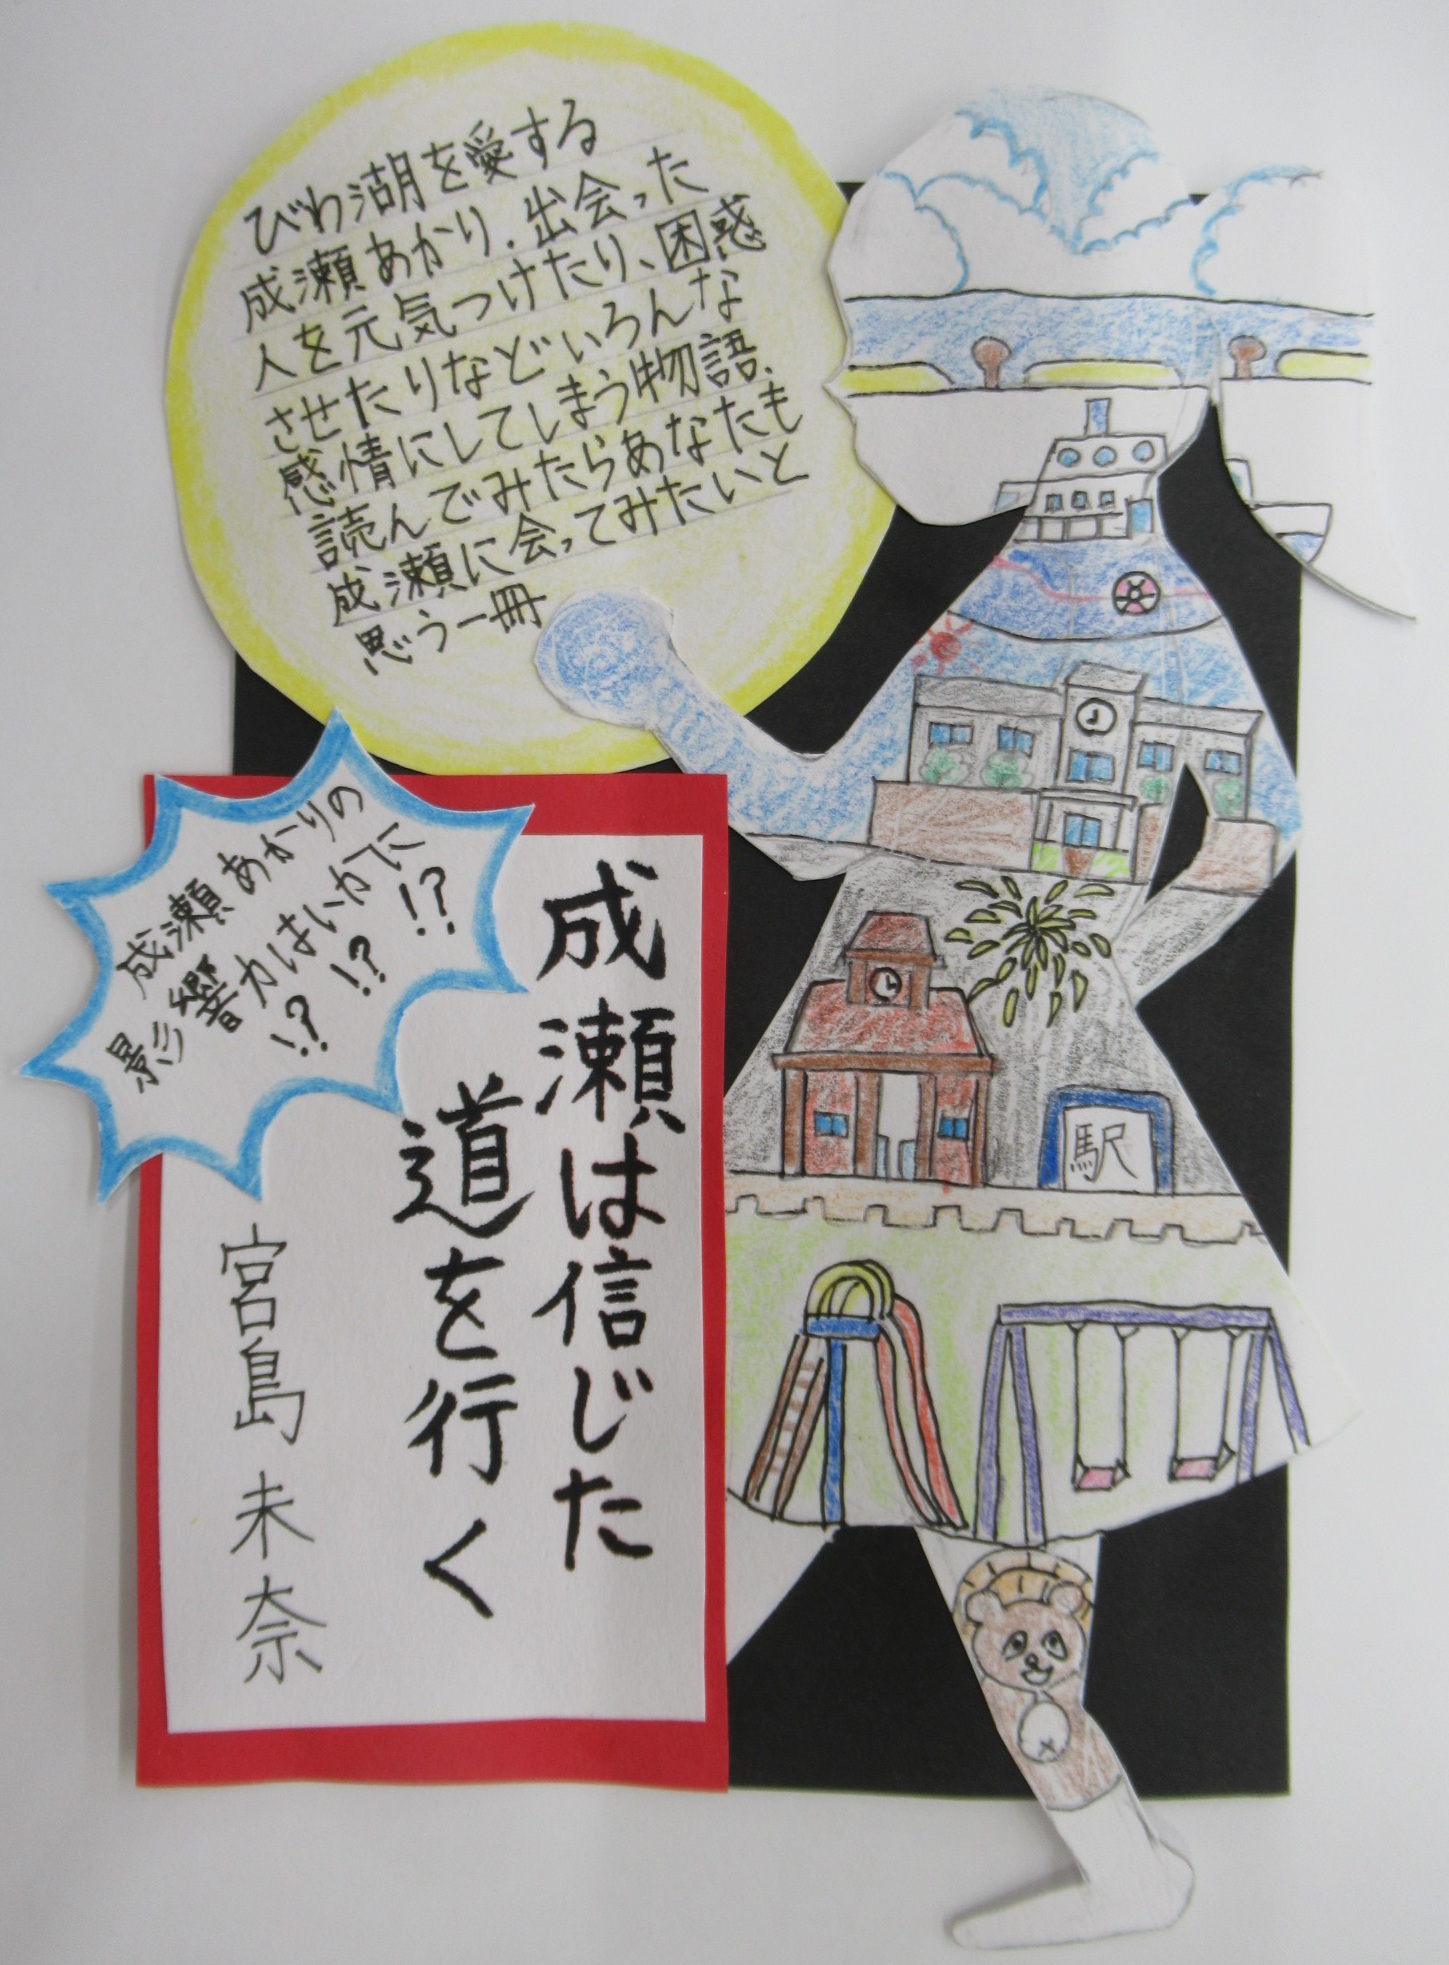 びわ湖を愛する
成瀬あかり.出会った
人を元気つけたり、困惑
させたりなどいろんな
感情にしてしまう物語.
読んでみたらあなたも
成瀬に会ってみたいと
思う一冊
成瀬あかりの
影響力はいかでに
!? !? !?
成瀬は信じた
道を行く
宮島未奈
駅